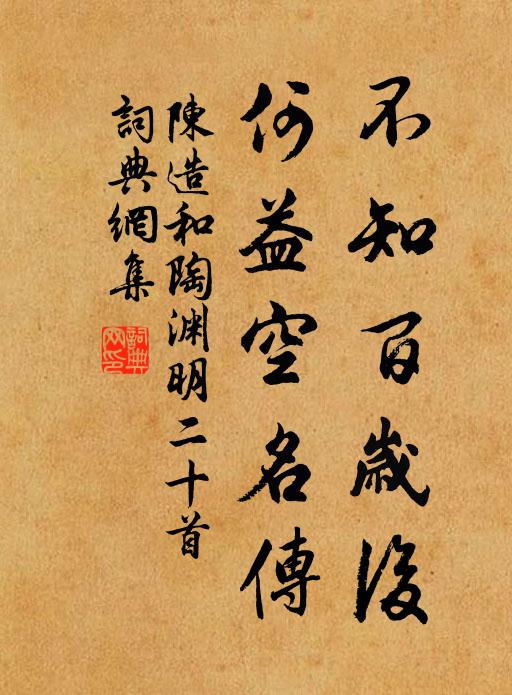 不知百歲後
何益空名傳
陳造和陶渊明二十首
詞典網集
詞典網印